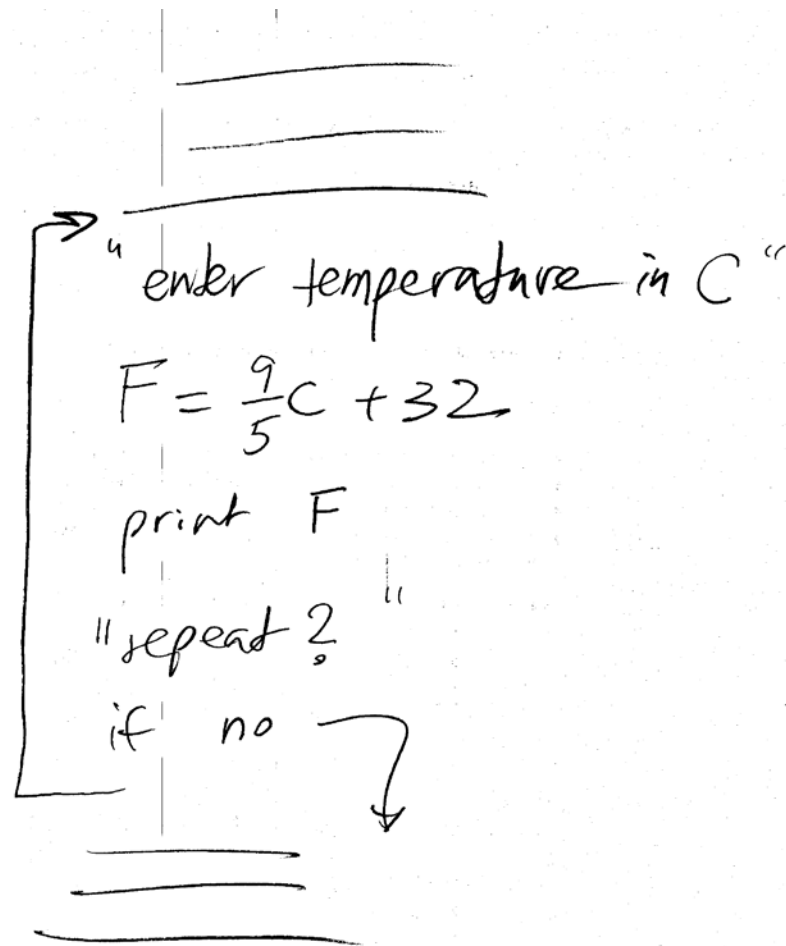 "enter temperature in C"
F = 9/5 C + 32
print F
"repeat? "
if no